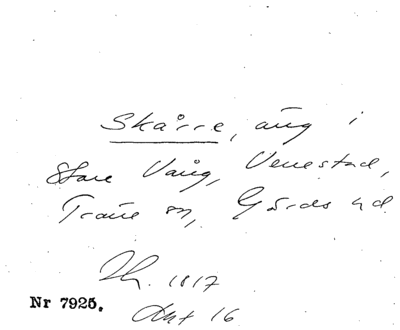 Skårre, äng i
Stora Vång, Venestad,
Trane sn, Gärds hd
1817
Nr 7925. Akt 16